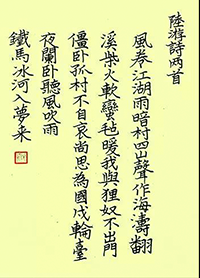 陸游詩兩首
風卷江湖雨暗村四山聲作海濤翻
溪柴火軟蠻氈暖我與狸奴不出門
僵卧孤村不自哀尚思為國戍輪臺
夜闌卧聽風吹雨
鐵馬冰河入夢来